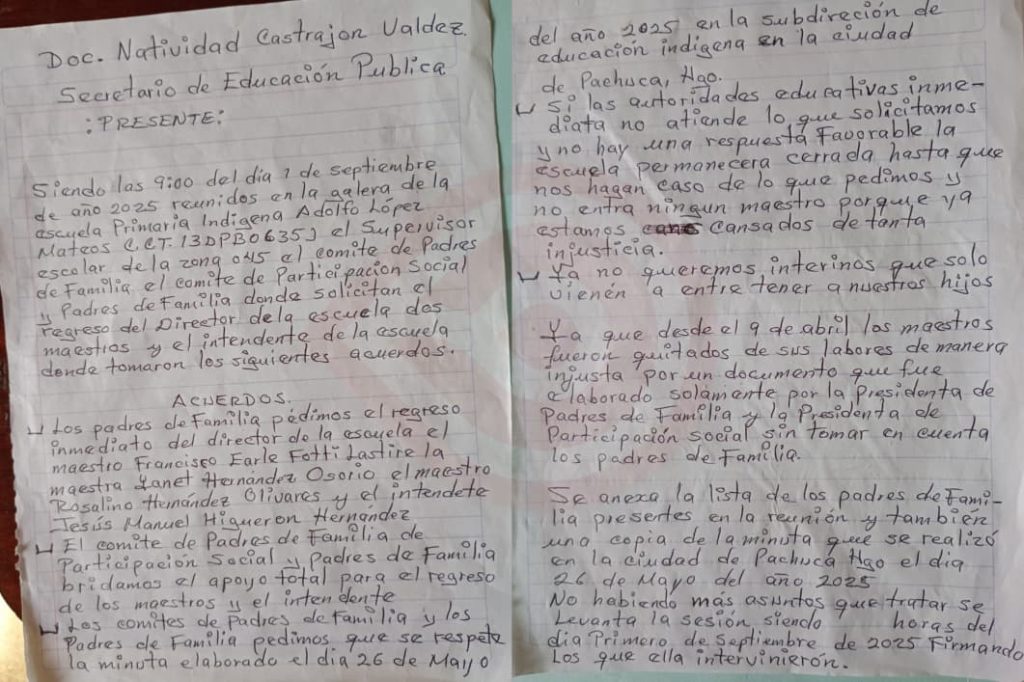 Doc. Natividad Castrajon Valdez.
Secretario de Educación Publica
:PRESENTE:
Siendo las 9:00 del día 1 de septiembre
de año 2025 reunidos en la galera de la
escuela Primaria Indigena Adolfo López
Mateos C.C.T. 13DPB0635J el Supervisor
escolar de la zona 045 el comite de Padres
de Familia el comite de Participación Social
y Padres de Familia donde solicitan el
regreso del Director de la escuela dos
maestros y el intendente de la escuela
donde tomaron los siguientes acuerdos.
ACUERDOS.
Los padres de Familia pedimos el regreso
inmediato del director de la escuela el
maestro Francisco Earle Fotti Lastire la
maestra Yanet Hernández Osorio el maestro
Rosalino Hernández Olivares y el intendete
Jesús Manuel Higueron Hernández
El comite de Padres de Familia de
Participación Social y Padres de Familia
bridamos el apoyo total para el regreso
de los maestros y el intendente
Los comites de Padres de Familia y los
Padres de Familia pedimos que se respete
la minuta elaborado el dia 26 de Mayo
del año 2025 en la subdireción de
educación indigena en la ciudad
de Pachuca, Hgo.
Si las autoridades educativas inme-
diata no atiende lo que solicitamos
y no hay una respuesta Favorable la
escuela permanecera cerrada hasta que
nos hagan caso de lo que pedimos y
no entra ningun maestro porque ya
estamos cansados de tanta
injusticia.
Ya no queremos interinos que solo
vienen a entre tener a nuestros hijos
Ya que desde el 9 de abril los maestros
fueron quitados de sus labores de manera
injusta por un documento que fue
elaborado solamente por la Presidenta de
Padres de Familia y la Presidenta de
Participación social sin tomar en cuenta
los padres de Familia.
Se anexa la lista de los padres de Fami-
lia presentes en la reunión y también
una copia de la minuta que se realizó
en la ciudad de Pachuca Hgo el dia
26 de Mayo del año 2025
No habiendo más asuntos que tratar se
Levanta la sesión siendo horas del
día Primero de Septiembre de 2025 Firmando
Los que ella intervinierón.